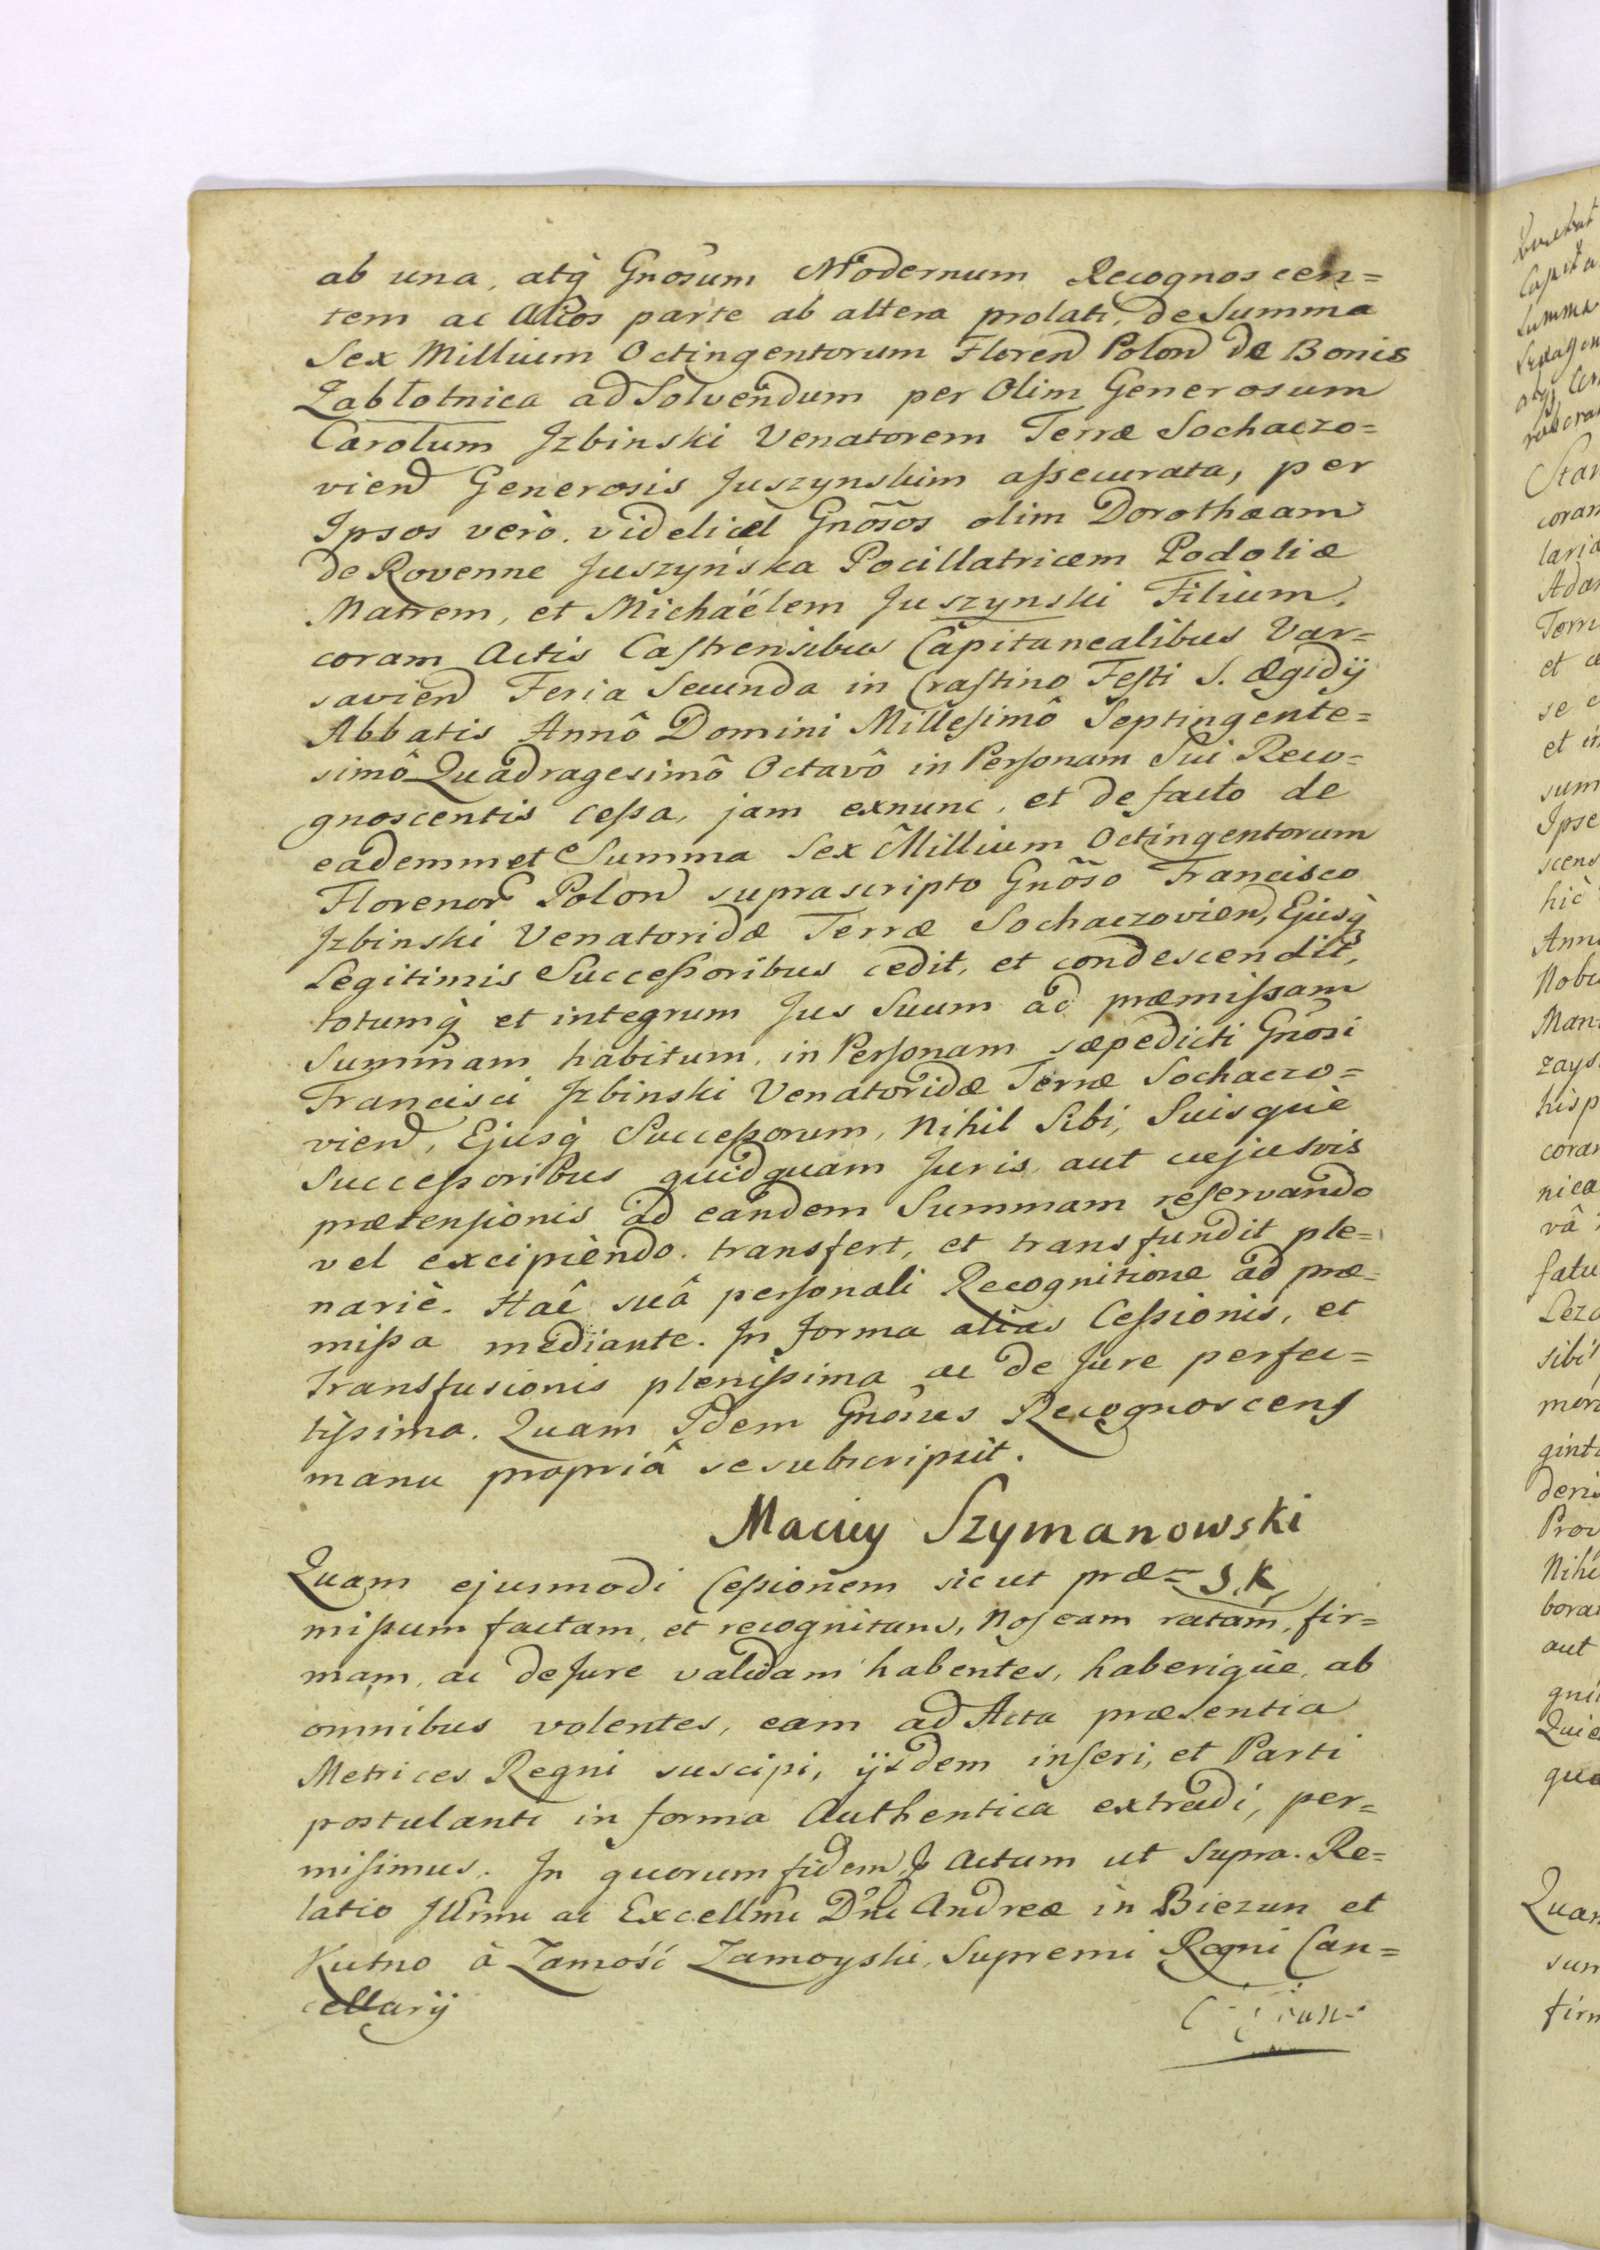 ab una, atq̀ Gnosum Modernum Recognoscen=
tem ac Alios parte ab altera prolati, de Summa
Sex Millium Octingentorum Floren Polon de Bonis
Zabłotnica ad Solvendum per Olim Generosum
Carolum Jzbinski Venatorem Terræ Sochaczo=
vien Generosis Juszynskim assecurata, per
Ipsos verò videlicet Gnosos olim Dorothæam
de Rovenne Juszyńska Pocillatricem Podoliæ
Matrem, et Michaëlem Juszynski Filium,
coram Actis Castrensibus Capitanealibus Var=
savien Feria Secunda in Crastino Festi S. Ægidij
Abbatis Annô Domini Millesimô Septingente=
simô Quadragesimô Octavô in Personam Sui Reco=
gnoscentis cessa, jam exnunc, et de facto de
eademmet Summa Sex Millium Octingentorum
Florenor Polon suprascripto Gnoso Francisco
Jzbinski Venatoridæ Terræ Sochaczovien, Ejusq̀
Legitimis Successoribus cedit, et condescendit,
totumq̀ et integrum Jus Suum ad præmissam
Summam habitum, in Personam sæpedicti Gnosi
Francisci Jzbinski Venatoridæ Terræ Sochaczo=
vien, Ejusq̀ Successorum, Nihil Sibi, Suisquè
Successoribus quidquam Juris, aut cujusvis
prætensionis ad eandem Summam reservando
vel excipièndo. transfert, et transfundit ple=
nariè. Hac suâ personali Recognitione ad præ=
missa mediante. Jn forma alias Cessionis, et
Transfusionis plenissima ac de Jure perfec=
tissima. Quam Idem Gnosus Recognoscens
manu propriâ se subscripsit.
Maciey Szymanowski
S K
Quam ejusmodi Cessionem sicut præ=
missum factam, et recognitam, Nos eam ratam, fir=
mam, ac de Jure validam habentes, haberiqùe, ab
omnibus volentes, eam ad Acta præsentia
Metrices Regni suscipi, ijsdem inseri, et Parti
postulanti in forma Authentica extradi, per=
misimus. Jn quorum fidem Actum ut Supra. Re=
latio Jllrmi ac Excellmi Dni Andreæ in Biezun et
Kutno à Zamość Zamoyski, Supremi Regni Can=
cellarij